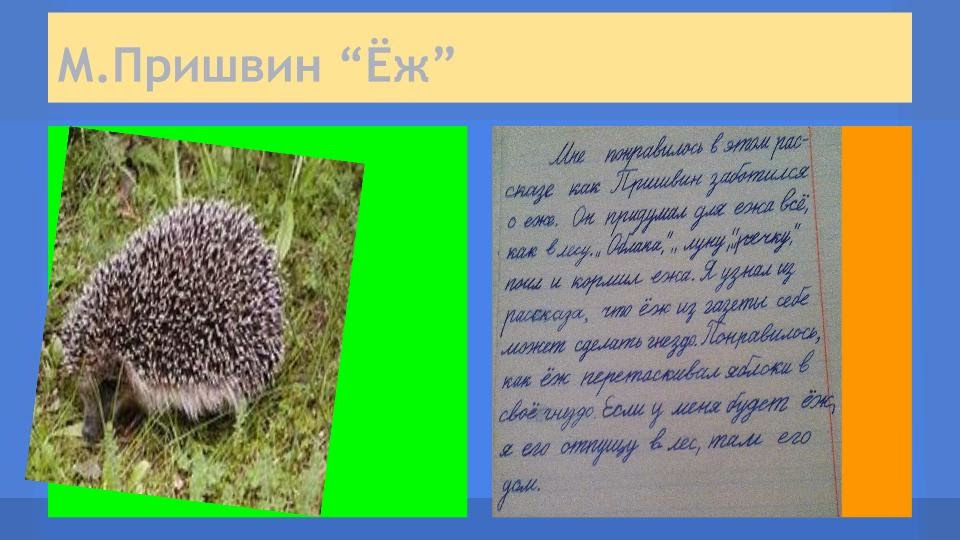 М.Пришвин “Ёж”
Мне понравилось в этом рас-
сказе как Пришвин заботился
о еже. Он придумал для ежа всё,
как в лесу. „Облака,” „луну,” „речку,”
поил и кормил ежа. Я узнал из
рассказа, что ёж из газеты себе
может сделать гнездо. Понравилось,
как ёж перетаскивал яблоки в
своё гнездо. Если у меня будет ёж,
я его отпущу в лес, там его
дом.